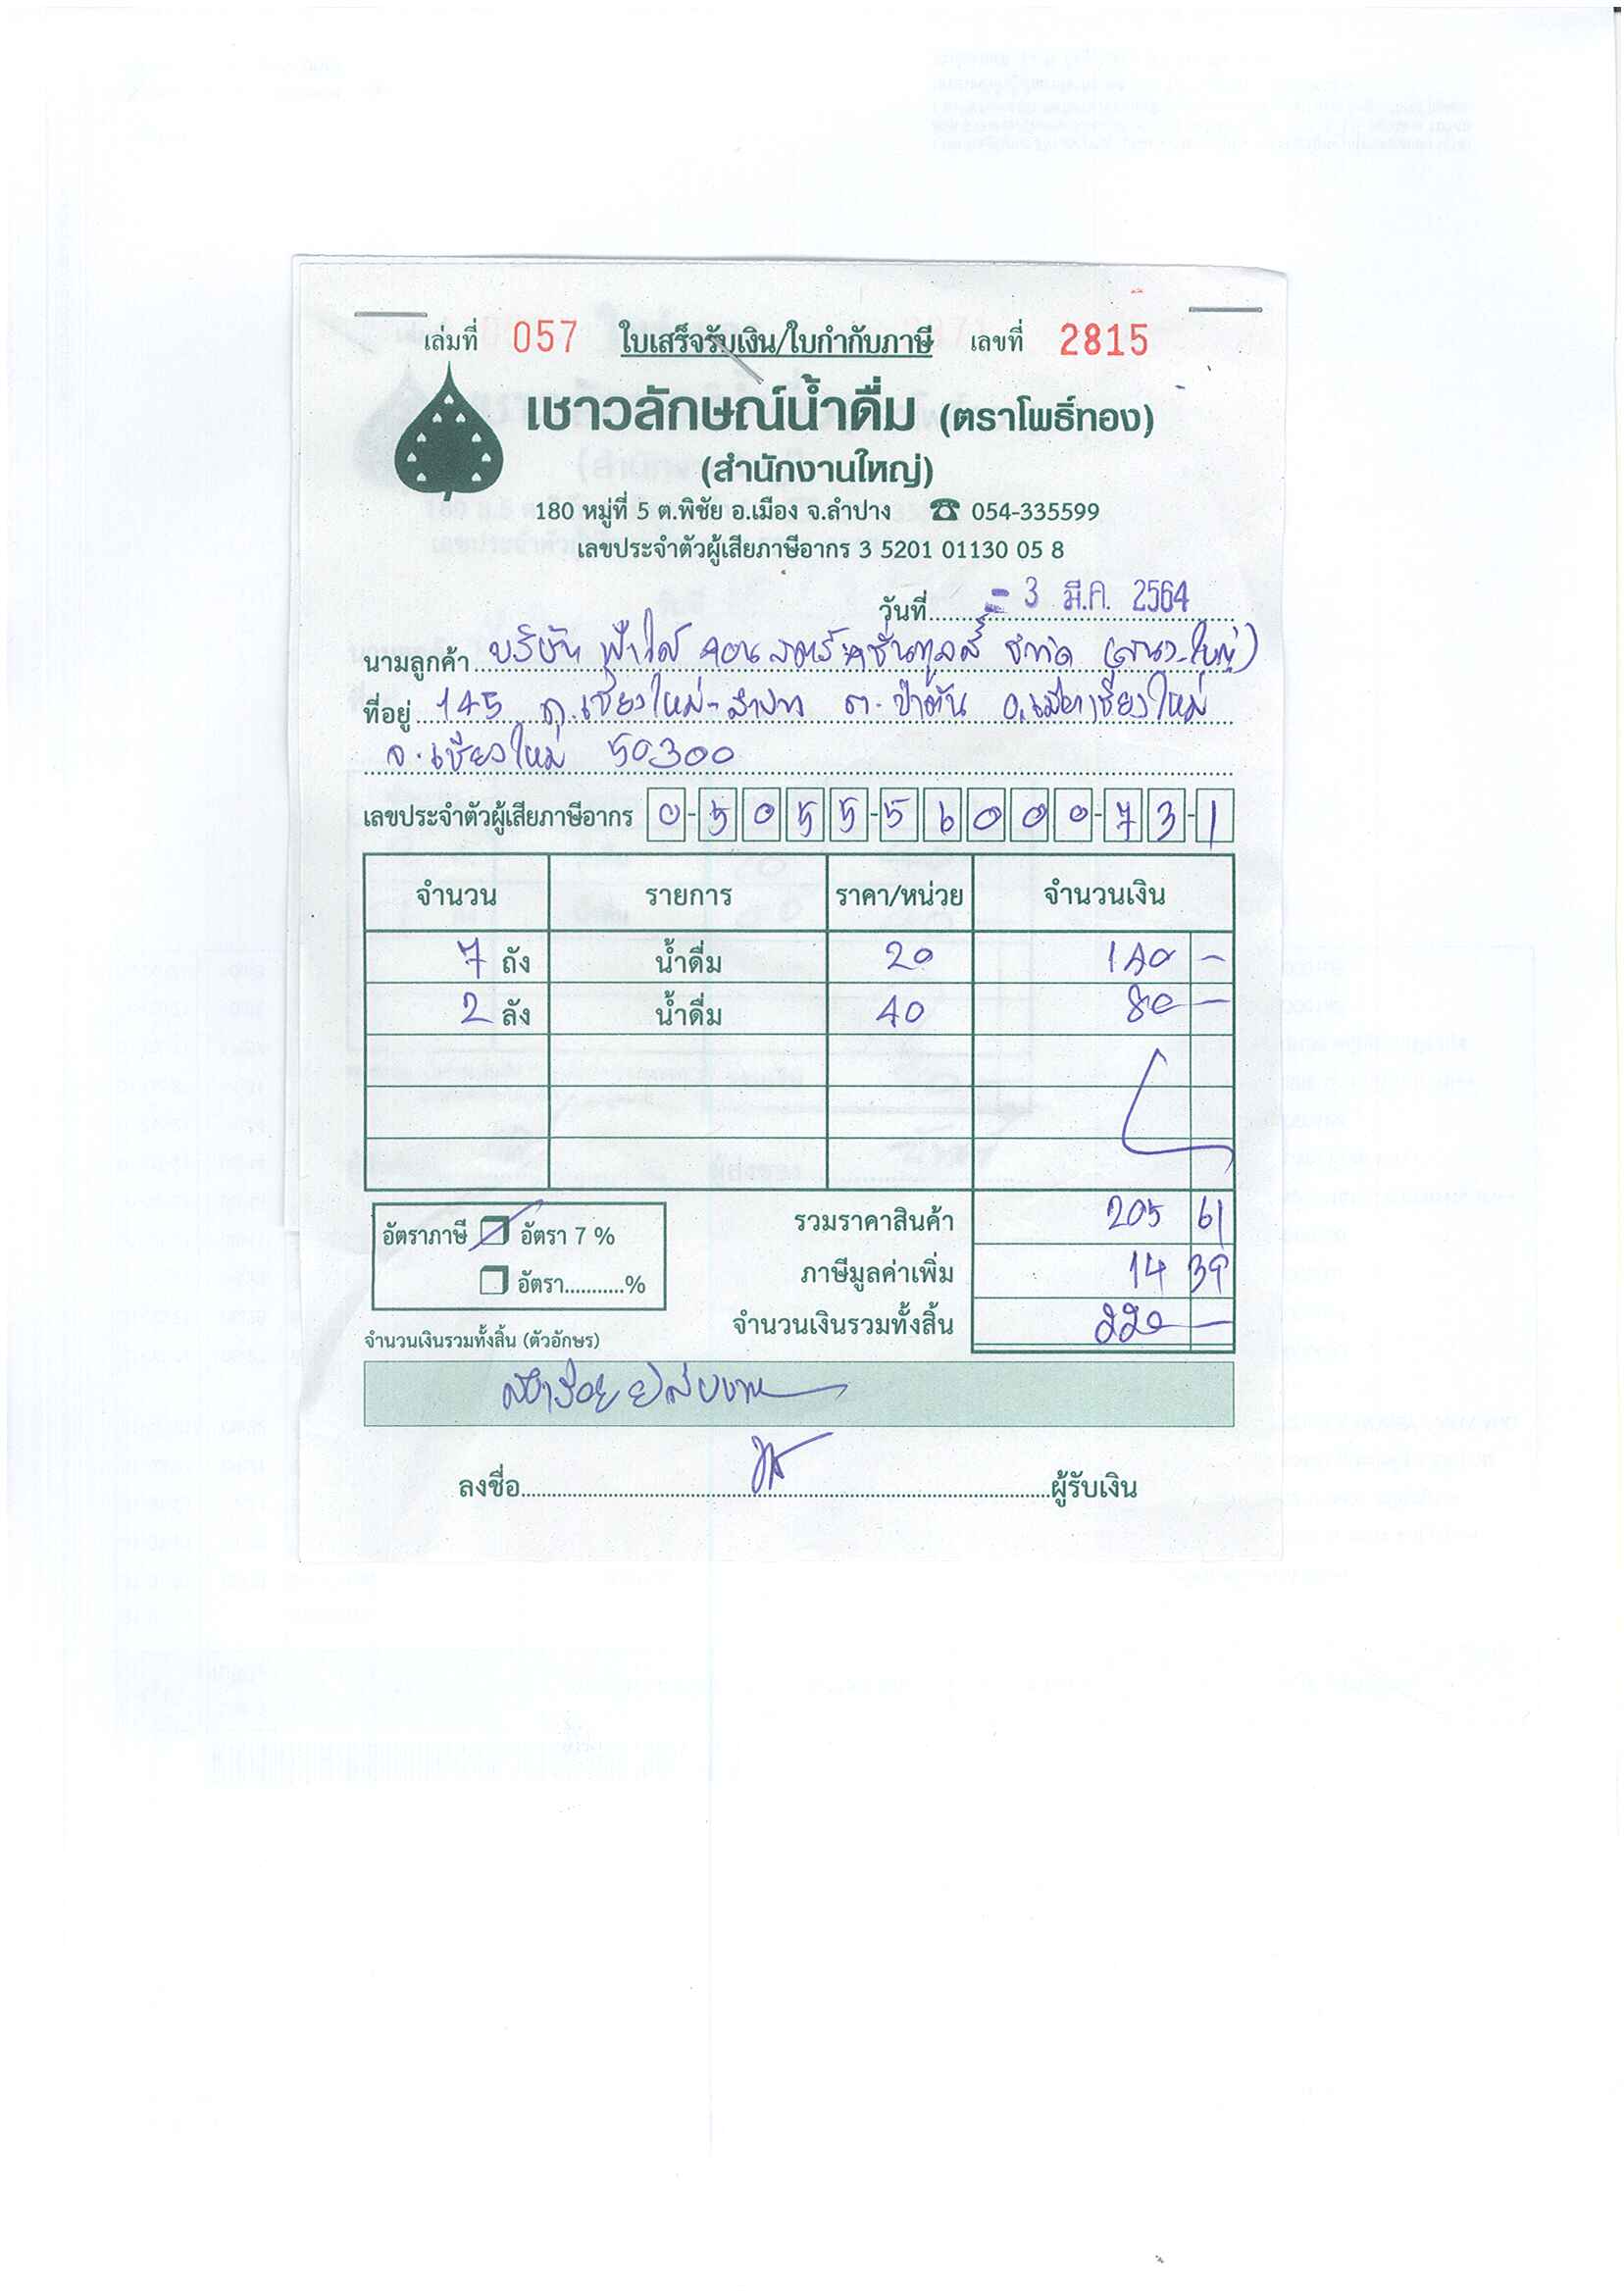 เล่มที่ 057 ใบเสร็จรับเงิน/ใบกำกับภาษี เลขที่ 2815
เชาวลักษณ์น้ำดื่ม (ตราโพธิ์ทอง)
(สำนักงานใหญ่)
180 หมู่ที่ 5 ต.พิชัย อ.เมือง จ.ลำปาง ☎ 054-335599
เลขประจำตัวผู้เสียภาษีอากร 3 5201 01130 05 8
วันที่ - 3 มี.ค. 2564
นามลูกค้า บริษัท คอนสตรัคชั่นทูลส์ จำกัด (สนง.ใหญ่)
ที่อยู่ 145 ถ.เชียงใหม่-ลำปาง ต.ป่าตัน อ.เมืองเชียงใหม่
จ.เชียงใหม่ 50300
เลขประจำตัวผู้เสียภาษีอากร 0-5055-56000-73-1
จำนวน รายการ ราคา/หน่วย จำนวนเงิน
7 ถัง น้ำดื่ม 20 140 -
2 ลัง น้ำดื่ม 40 80 -
อัตราภาษี อัตรา 7 % รวมราคาสินค้า 205 61
อัตรา...........% ภาษีมูลค่าเพิ่ม 14 39
จำนวนเงินรวมทั้งสิ้น 220 -
จำนวนเงินรวมทั้งสิ้น (ตัวอักษร)
สองร้อยยี่สิบบาท
ลงชื่อ ผู้รับเงิน